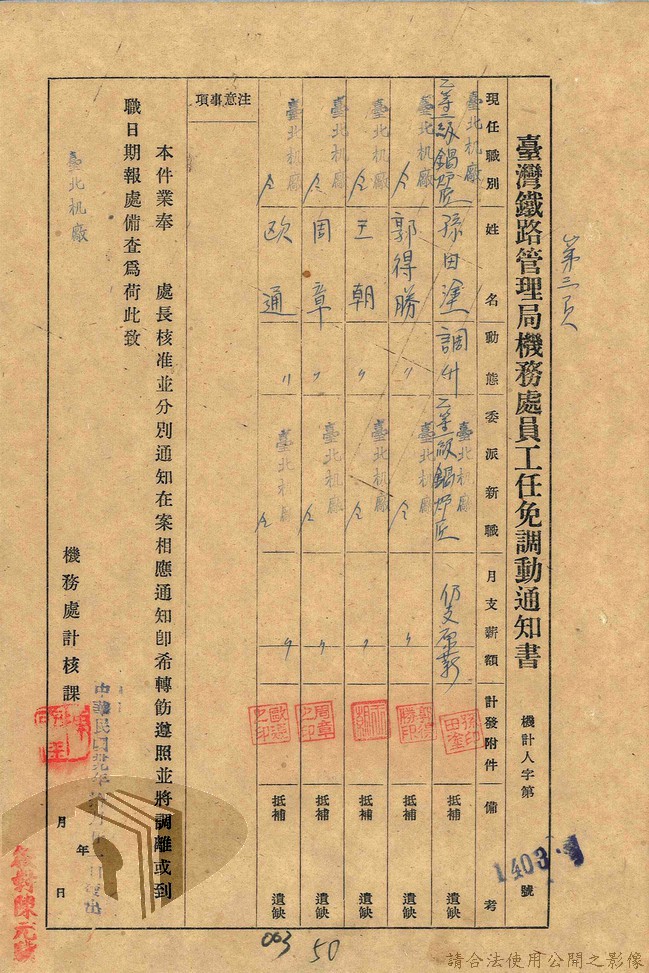 第三頁
臺灣鐵路管理局機務處員工任免調動通知書
機計人字第 1403 號
現任職別 姓名 動態 委派新職 月支薪額 計發附件 備考
臺北机廠 二等二級鍋炉匠 孫田塗 調升 二等一級鍋炉匠 臺北机廠 仍支原薪 孫田塗印 抵補 遺缺
臺北机廠 仝 郭得勝 〃 臺北机廠 仝 〃 郭得勝印 抵補 遺缺
臺北机廠 仝 王朝 〃 臺北机廠 仝 〃 抵補 遺缺
臺北机廠 仝 周章 〃 臺北机廠 仝 〃 周章之印 抵補 遺缺
臺北机廠 仝 欧通 〃 臺北机廠 仝 〃 歐通之印 抵補 遺缺
注意事項
本件業奉 處長核准並分別通知在案相應通知卽希轉飭遵照並將調離或到
職日期報處備查爲荷此致
臺北机廠
機務處計核課
中華民國卅九年
年 月 日
063 50
請合法使用公開之影像